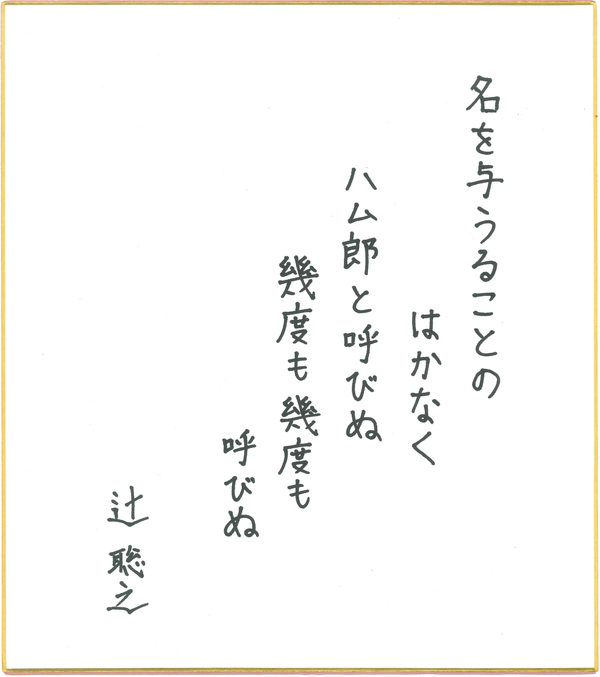 名を与うることの
はかなく
ハム郎と呼びぬ
幾度も幾度も
呼びぬ
辻聡之